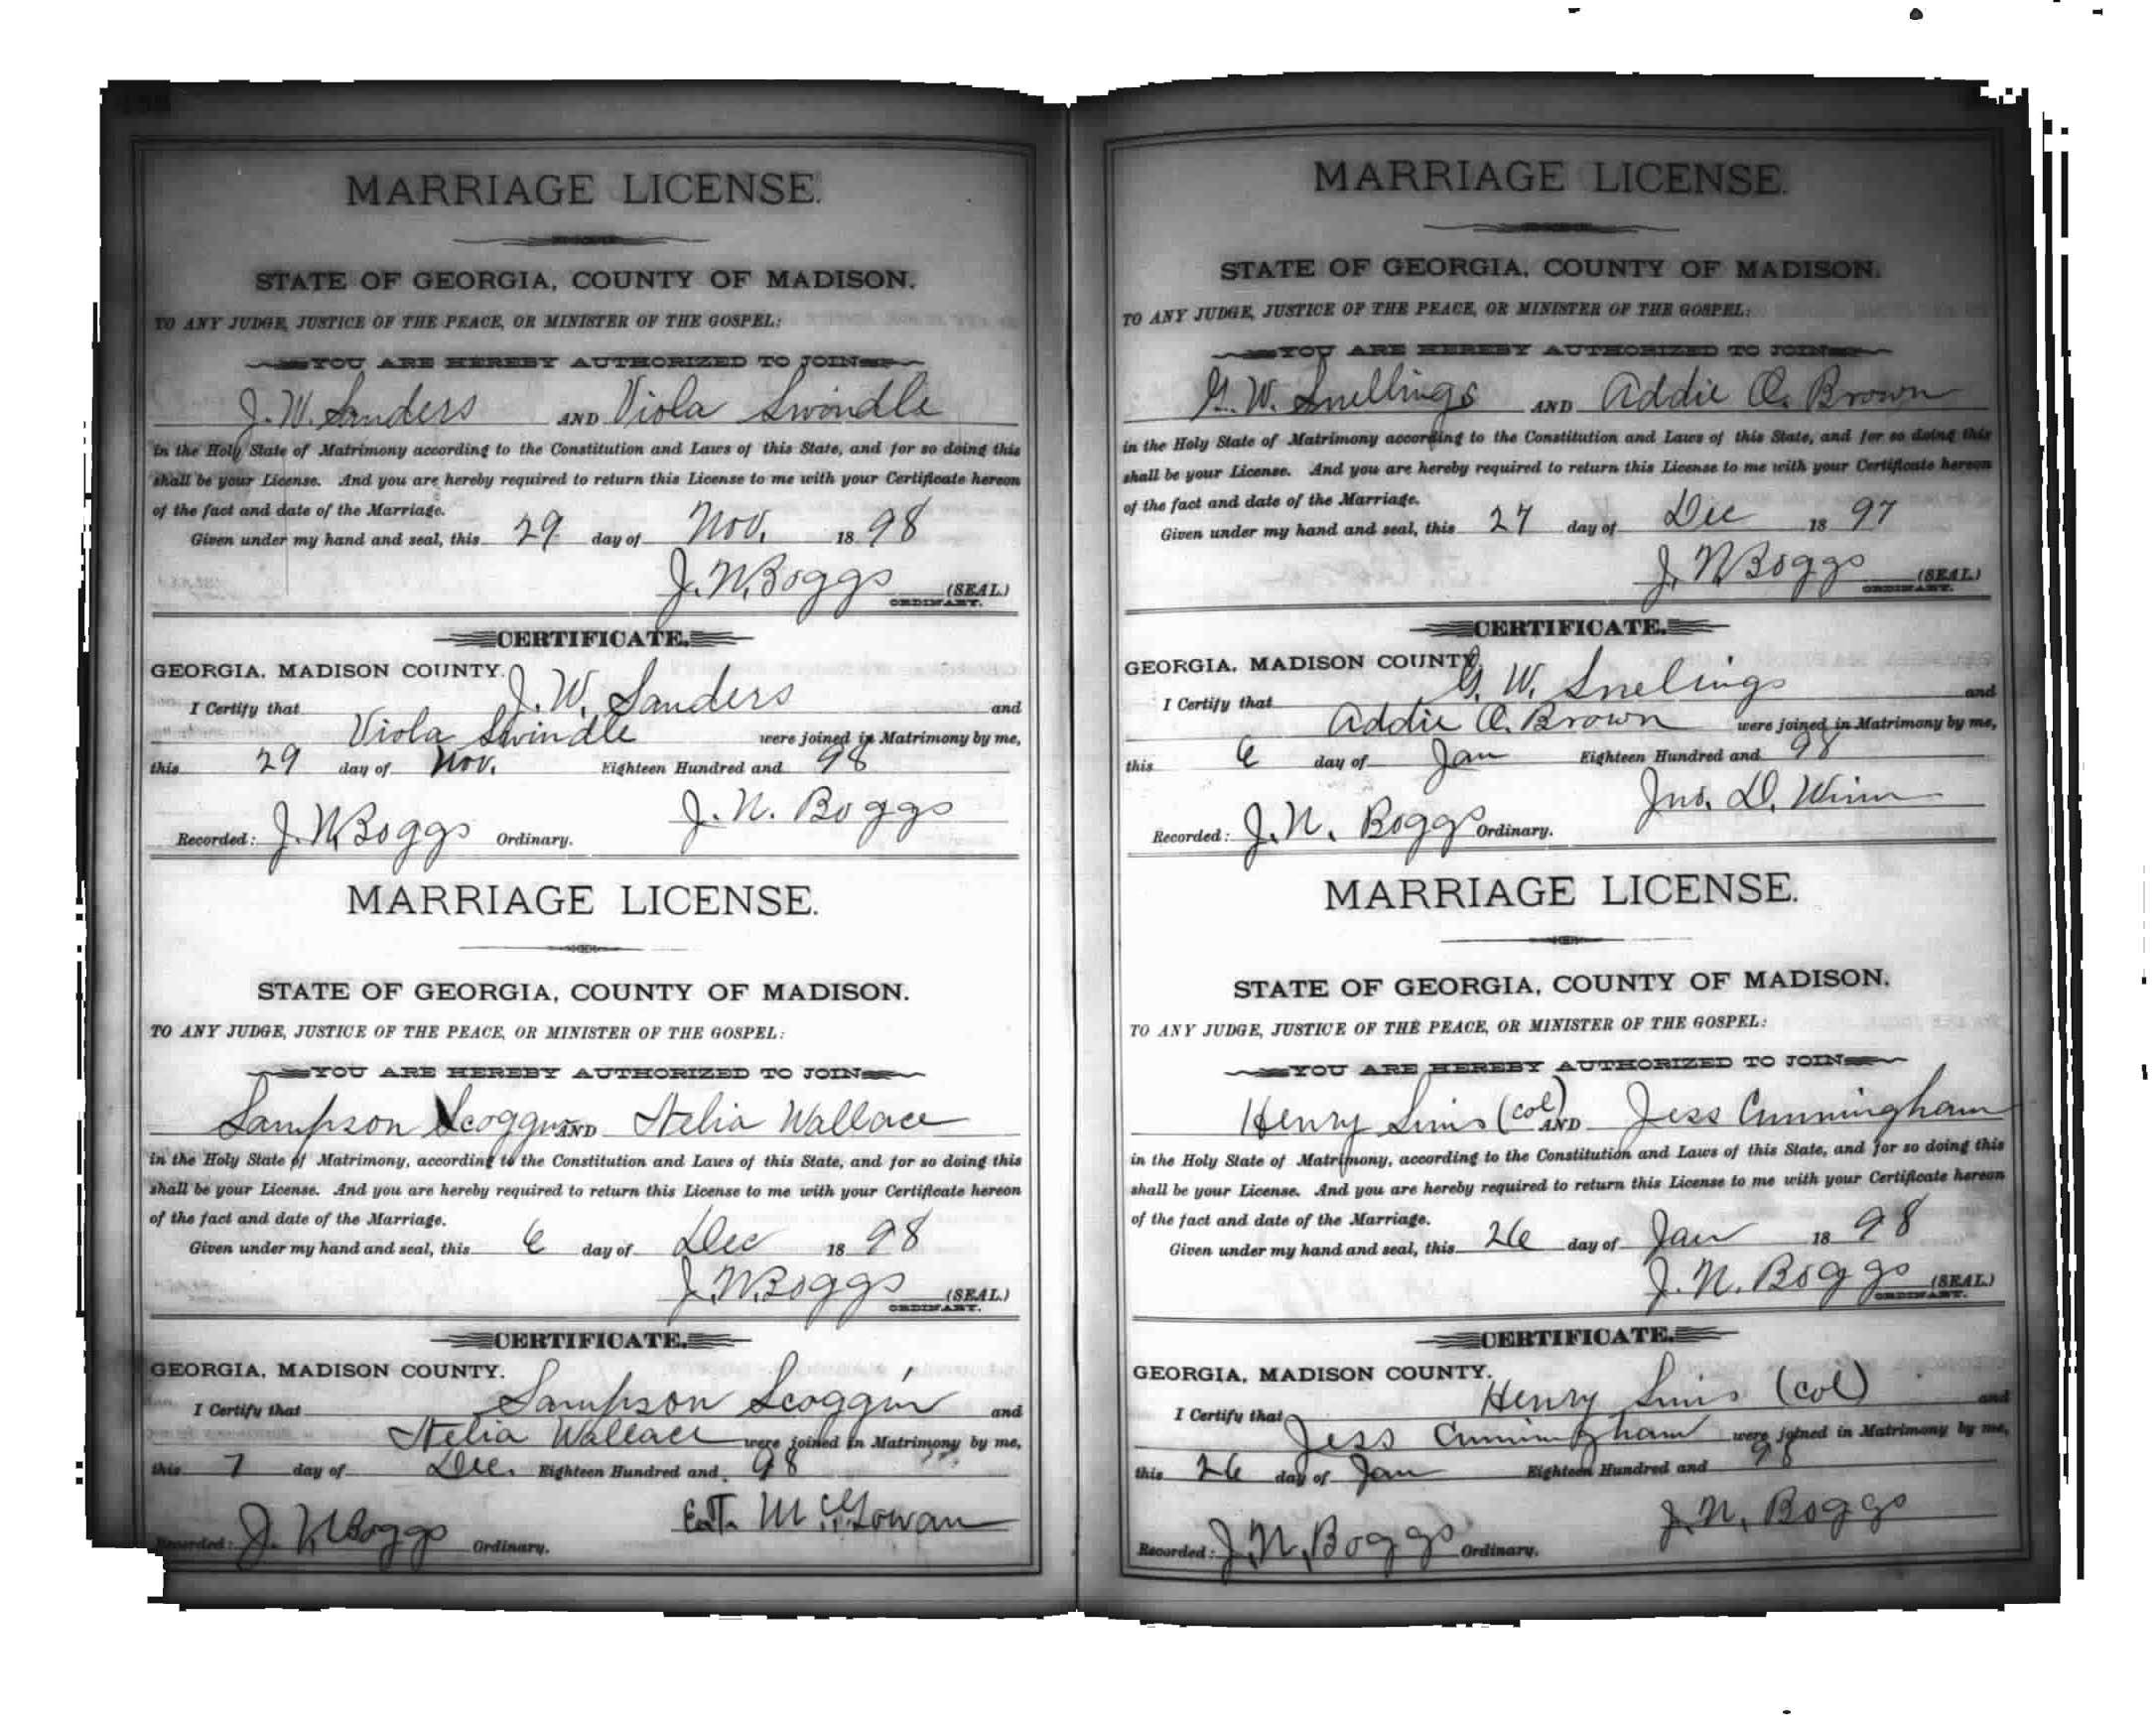 MARRIAGE LICENSE.
STATE OF GEORGIA, COUNTY OF MADISON.
TO ANY JUDGE, JUSTICE OF THE PEACE, OR MINISTER OF THE GOSPEL:
YOU ARE HEREBY AUTHORIZED TO JOIN
J. W. Sanders AND Viola Swindle
in the Holy State of Matrimony according to the Constitution and Laws of this State, and for so doing this
shall be your License. And you are hereby required to return this License to me with your Certificate hereon
of the fact and date of the Marriage.
Given under my hand and seal, this 29 day of Nov. 18 98
J. N. Boggs (SEAL)
ORDINARY.
CERTIFICATE.
GEORGIA, MADISON COUNTY.
I Certify that J. W. Sanders and
Viola Swindle were joined in Matrimony by me,
this 29 day of Nov. Eighteen Hundred and 98
J. N. Boggs
Recorded: J. N. Boggs Ordinary.
MARRIAGE LICENSE.
STATE OF GEORGIA, COUNTY OF MADISON.
TO ANY JUDGE, JUSTICE OF THE PEACE, OR MINISTER OF THE GOSPEL:
YOU ARE HEREBY AUTHORIZED TO JOIN
Sampson Scoggin AND Stelia Wallace
in the Holy State of Matrimony, according to the Constitution and Laws of this State, and for so doing this
shall be your License. And you are hereby required to return this License to me with your Certificate hereon
of the fact and date of the Marriage.
Given under my hand and seal, this 6 day of Dec 18 98
J. N. Boggs (SEAL.)
ORDINARY.
CERTIFICATE.
GEORGIA, MADISON COUNTY.
I Certify that Sampson Scoggin and
Stelia Wallace were joined in Matrimony by me,
this 7 day of Dec. Eighteen Hundred and 98
McGowan
Recorded: J. N. Boggs Ordinary.
MARRIAGE LICENSE.
STATE OF GEORGIA, COUNTY OF MADISON.
TO ANY JUDGE, JUSTICE OF THE PEACE, OR MINISTER OF THE GOSPEL:
YOU ARE HEREBY AUTHORIZED TO JOIN
G. W. Snellings AND Addie O. Brown
in the Holy State of Matrimony according to the Constitution and Laws of this State, and for so doing this
shall be your License. And you are hereby required to return this License to me with your Certificate hereon
of the fact and date of the Marriage.
Given under my hand and seal, this 27 day of Dec 18 97
J. N. Boggs (SEAL)
ORDINARY.
CERTIFICATE.
GEORGIA, MADISON COUNTY.
I Certify that G. W. Snelings and
Addie O. Brown were joined in Matrimony by me,
this 6 day of Jan Eighteen Hundred and 98
Jno. D. Winn
Recorded: J. N. Boggs Ordinary.
MARRIAGE LICENSE.
STATE OF GEORGIA, COUNTY OF MADISON.
TO ANY JUDGE, JUSTICE OF THE PEACE, OR MINISTER OF THE GOSPEL:
YOU ARE HEREBY AUTHORIZED TO JOIN
Henry Sims (col) AND Jess Cunningham
in the Holy State of Matrimony, according to the Constitution and Laws of this State, and for so doing this
shall be your License. And you are hereby required to return this License to me with your Certificate hereon
of the fact and date of the Marriage.
Given under my hand and seal, this 26 day of Jan 18 98
J. N. Boggs (SEAL)
ORDINARY.
CERTIFICATE.
GEORGIA, MADISON COUNTY.
I Certify that Henry Sims (col) and
Jess Cunningham were joined in Matrimony by me,
this 26 day of Jan Eighteen Hundred and 98
J. N. Boggs
Recorded: J. N. Boggs Ordinary.